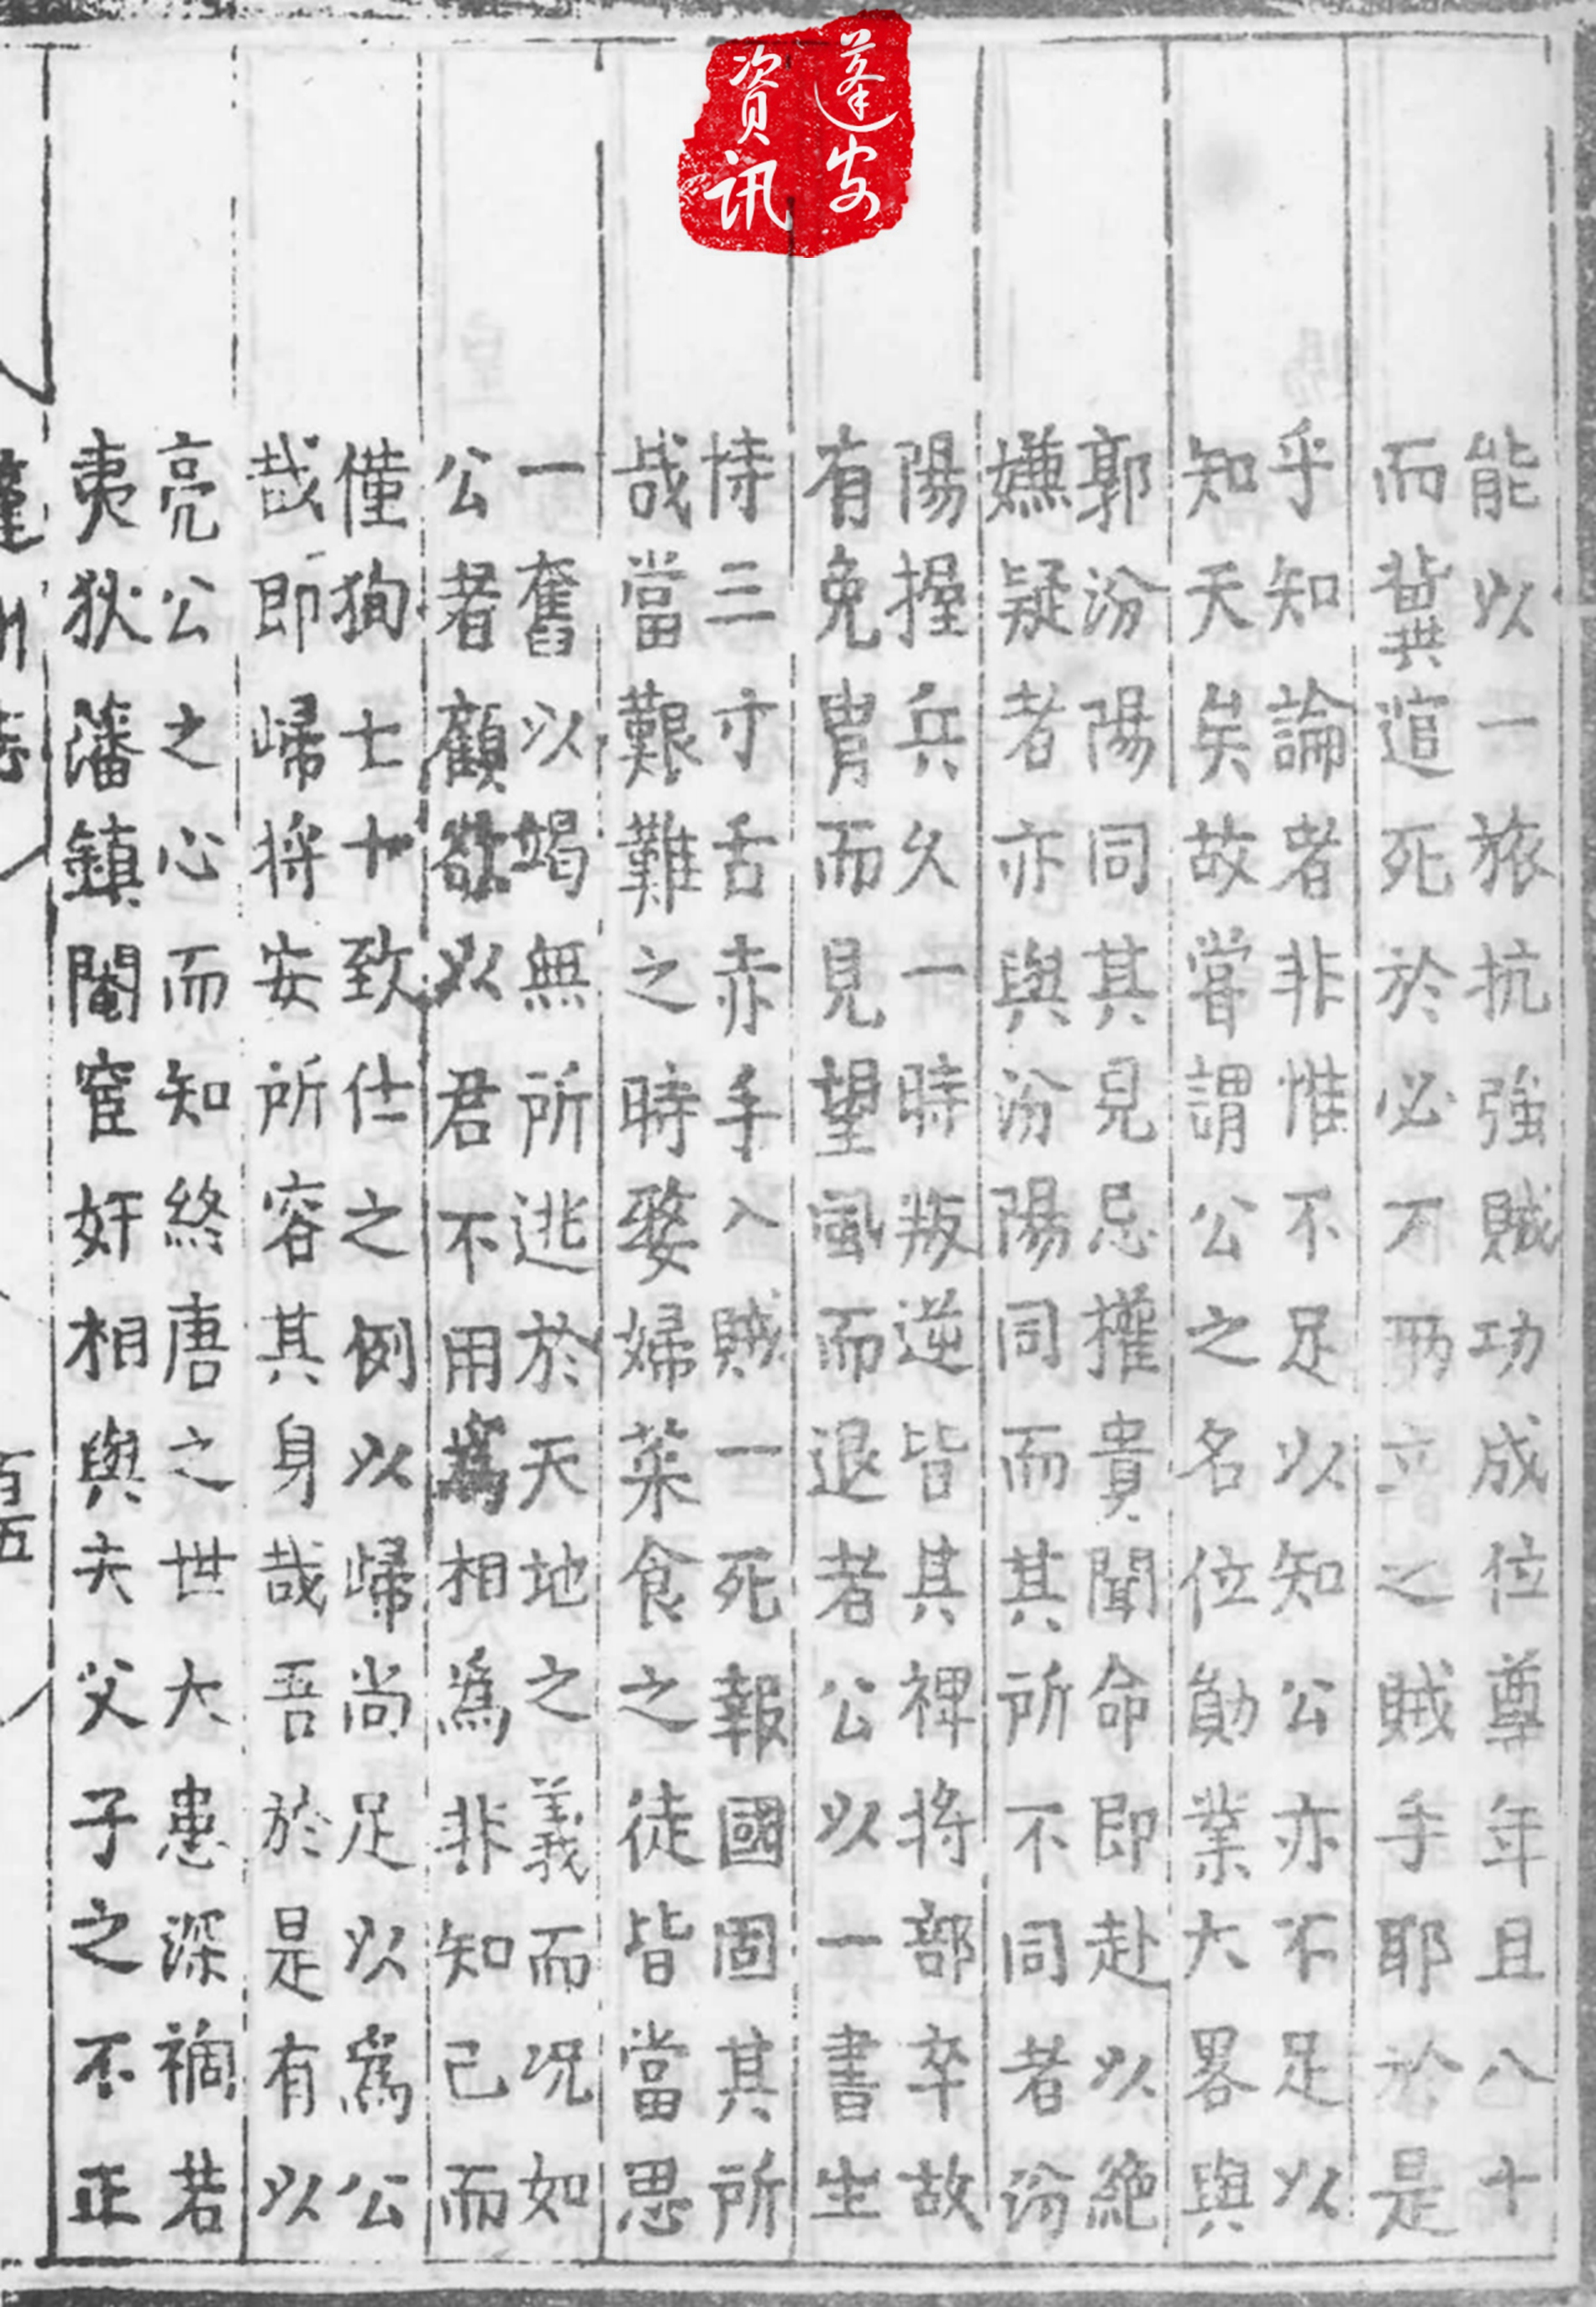 蓬安
资讯
能以一旅抗強賊功成位尊年且八十
而冀逭死於必不兩立之賊手耶於是
乎知論者非惟不足以知公亦不足以
知天矣故嘗謂公之名位勛業大畧與
郭汾陽同其見忌權貴聞命即赴以絶
嫌疑者亦與汾陽同而其所不同者汾
陽握兵久一時叛逆皆其裨將部卒故
有免胄而見望風而退者公以一書生
恃三寸舌赤手入賊一死報國固其所
哉當艱難之時婺婦菜食之徒皆當思
一奮以竭無所逃於天地之義而况如
公者顧欲以君不用爲相爲非知己而
僅狥七十致仕之例以歸尚足以爲公
哉即歸将安所容其身哉吾於是有以
亮公之心而知終唐之世大患深禍若
夷狄藩鎮閹宦奸相與夫父子之不正
蓬州志
百五